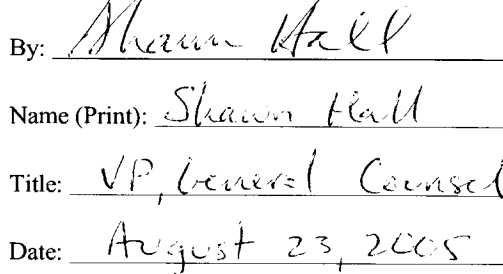 By: Shawn Hall
Name (Print): Shawn Hall
Title: VP, General Counsel
Date: August 23, 2005